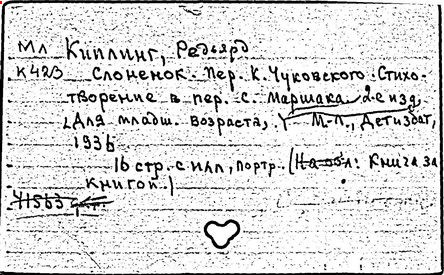 Мл Киплинг, Редьярд
К423 Слоненок. Пер. К. Чуковского. Стихо-
творение в пер. С. Маршака. 2-е изд.
(Для младш. возраста,) М.-Л., Детиздат,
1936
16 стр. с илл., портр. (На обл: Книга за
книгой)
41563